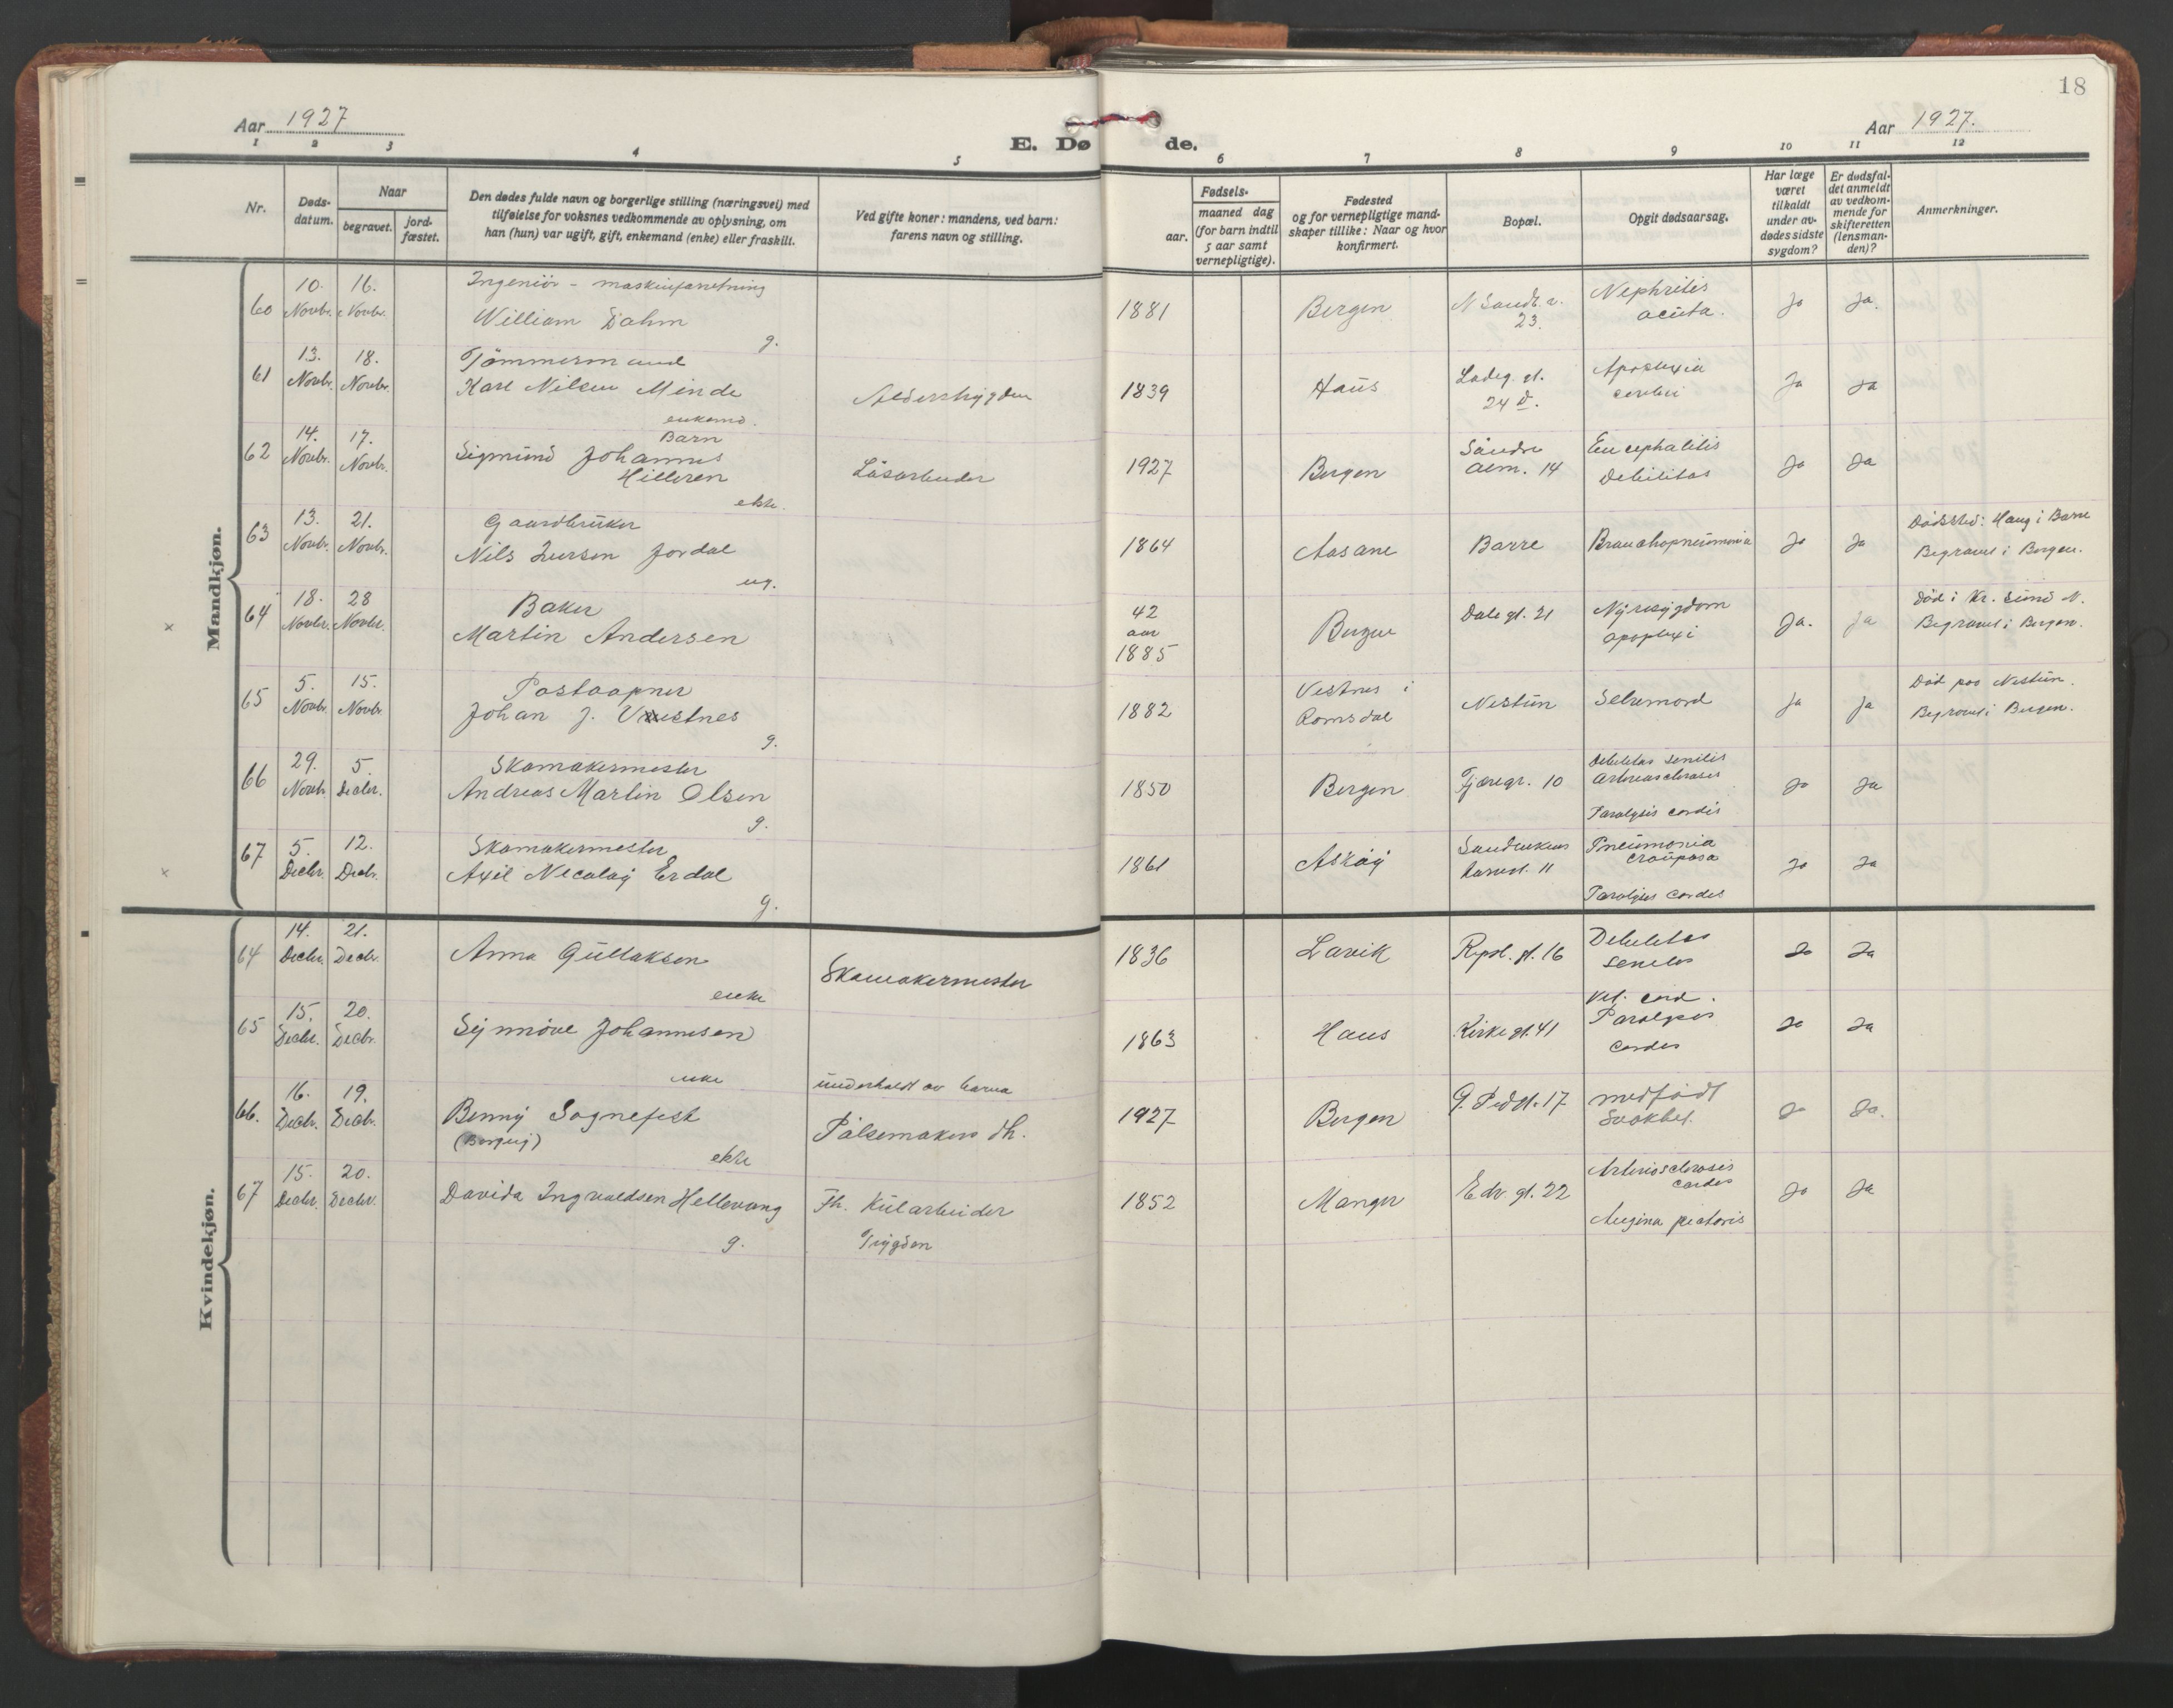 18
Aar 1927
E. Døde.
Aar 1927.
1 2 3 4 5 6 7 8 9 10 11 12
Nr.
Døds-
datum.
Naar
begravet.
jord-
fæstet.
Den dødes fulde navn og borgerlige stilling (næringsvei) med
tilføielse for voksnes vedkommende av oplysning, om
han (hun) var ugift, gift, enkemand (enke) eller fraskilt.
Ved gifte koner: mandens, ved barn:
farens navn og stilling.
aar.
Fødsels-
maaned dag
(for barn indtil
5 aar samt
vernepligtige).
Fødested
og for vernepligtige mand-
skaper tillike: Naar og hvor
konfirmert.
Bopæl.
Opgit dødsaarsag.
Har læge
været
tilkaldt
under av-
dødes sidste
sygdom?
Er dødsfal-
det anmeldt
av vedkom-
mende for
skifteretten
(lensman-
den)?
Anmerkninger.
Mandkjøn.
60 10. Novbr. 16. Novbr. Ingeniör - maskinforretning
William Dahm
g.
1881 Bergen N Sandv. v. 23. Nephritis acuta. Ja Ja.
61 13. Novbr. 18. Novbr. Tömmermand
Karl Nilsen Minde
enkemd.
Alderstrygden 1839 Haus Ladeg. gt. 24 D. Apoplexia cerebri Ja Ja
62 14. Novbr. 17. Novbr. Barn
Sigmund Johannes
Hilleren
ekte.
Lösarbeider 1927 Bergen Söndre Alm. 14 Encephalitis Debilitas Ja Ja
63 13. Novbr. 21. Novbr. Gaardbruker
Nils Iversen Jordal
ug.
1864 Aasane Barre Bronchopneumonia Ja Ja Dödssted: Haug i Barre
Begravet i Bergen.
64 18. Novbr. 28 Novbr. Baker
Martin Andersen
42 aar 1885 Bergen Dale gt. 21 Nyresygdom apoplexi Ja. Ja Död i Kr. sund N.
Begravet i Bergen.
65 5. Novbr. 15. Novbr. Postaapner
Johan J. Vestnes
g.
1882 Vestnes i Romsdal Nestun Selvmord Ja Ja Död paa Nestun.
Begravet i Bergen.
66 29. Novb. 5. Decbr. Skomakermester
Andreas Martin Olsen
g.
1850 Bergen Tjæregr. 10 Debilitas senilis
Arteriosclerosis
Paralysis cordis Ja Ja
67 5. Decbr. 12. Decbr. Skomakermester
Axel Nicolay Erdal
g.
1861 Asköy 11 Pneumonia
crouposa
Paralysis cordis Ja Ja
Kvindekjøn.
64 14. Decbr. 21. Decbr. Anna Gullaksen
enke
Skomakermester 1836 Lavik Repsl. gt. 16 Debilitas senilis Ja Ja
65 15. Decbr. 20. Decbr. Synnöve Johannesen
enke
underholdt av barna 1863 Haus Kirke gt. 41 Vit. cord.
Paralysis
cordis Ja Ja
66. 16. Decbr. 19. Decbr. Benny Sognefest
(Borgny)
ekte
Pölsemaker 1927 Bergen G. Ped gt. 17 medfödt
Svakhet. Ja Ja.
67 15. Decbr. 20. Decbr. Davida Ingvaldsen Hellevang
g.
Fh. Kularbeider
Trygden 1852 Manger Edv. gt. 22 Arteriosclerosis
cordis
Angina pectoris Ja Ja